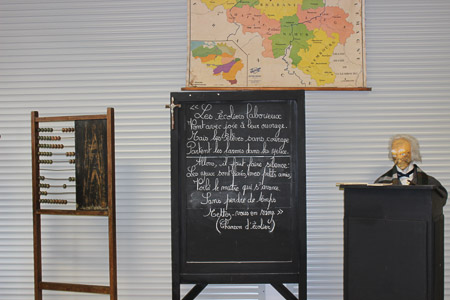 « Les Écoliers laborieux
Vont avec joie à leur ouvrage.
Mais les élèves sans courage
Portent les larmes dans les
Allons, il faut faire silence.
Les yeux sont fixés, mes petits amis,
Voilà le maître qui s'avance.
Sans perdre de temps
Mettez-vous en rang »
(Chanson d'écolier)